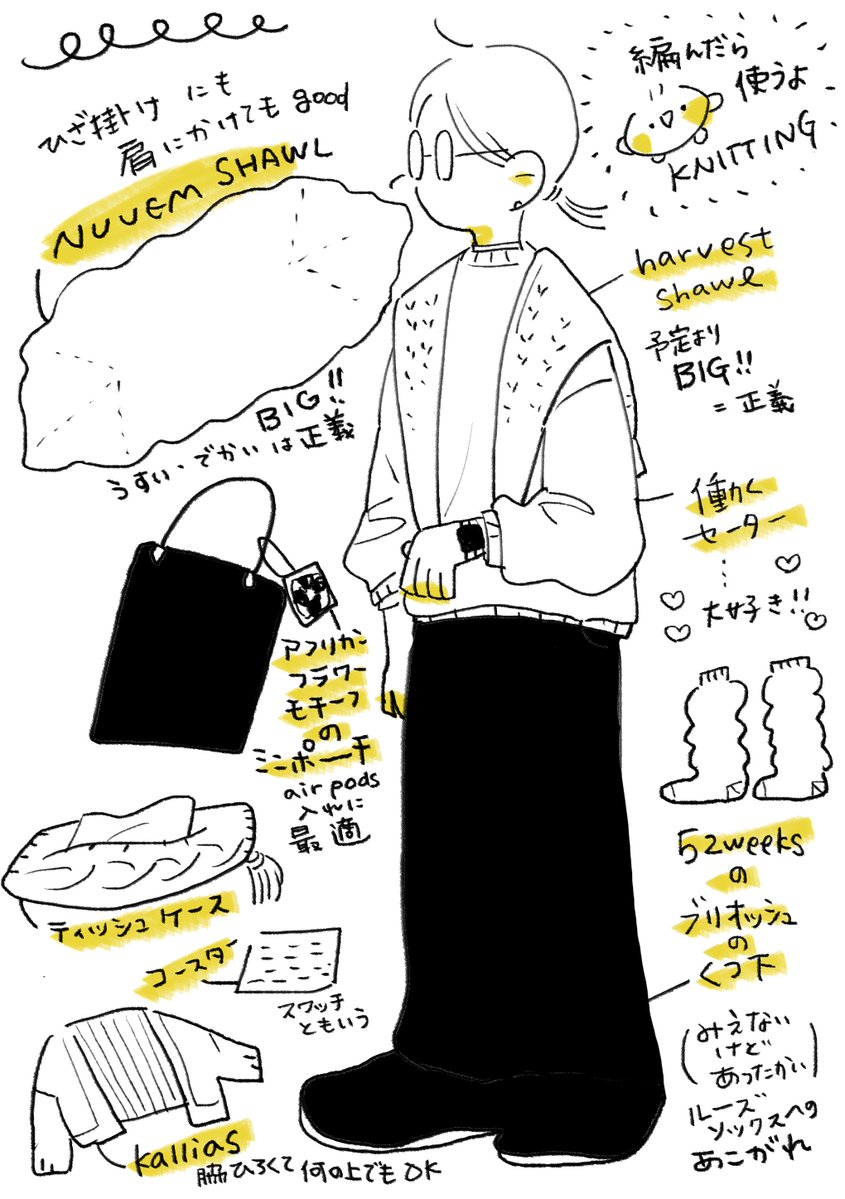 ひざ掛け にも
肩にかけても good
NUVEM SHAWL
BIG!!
うすい・でかい は 正義
編んだら
使うよ
KNITTING
harvest
shawl
予定より
BIG!!
= 正義
働く
セーター
大好き!!
アフリカン
フラワー
モチーフ
の
ミニポーチ
air pods
入れに
最適
ティッシュケース
コースター
スワッチ
ともいう
kallias
脇ひろくて 何の上でも OK
52weeks
の
ブリオッシュ
の
くつ下
(みえない
けど
あったかい)
ルーズ
ソックスへの
あこがれ